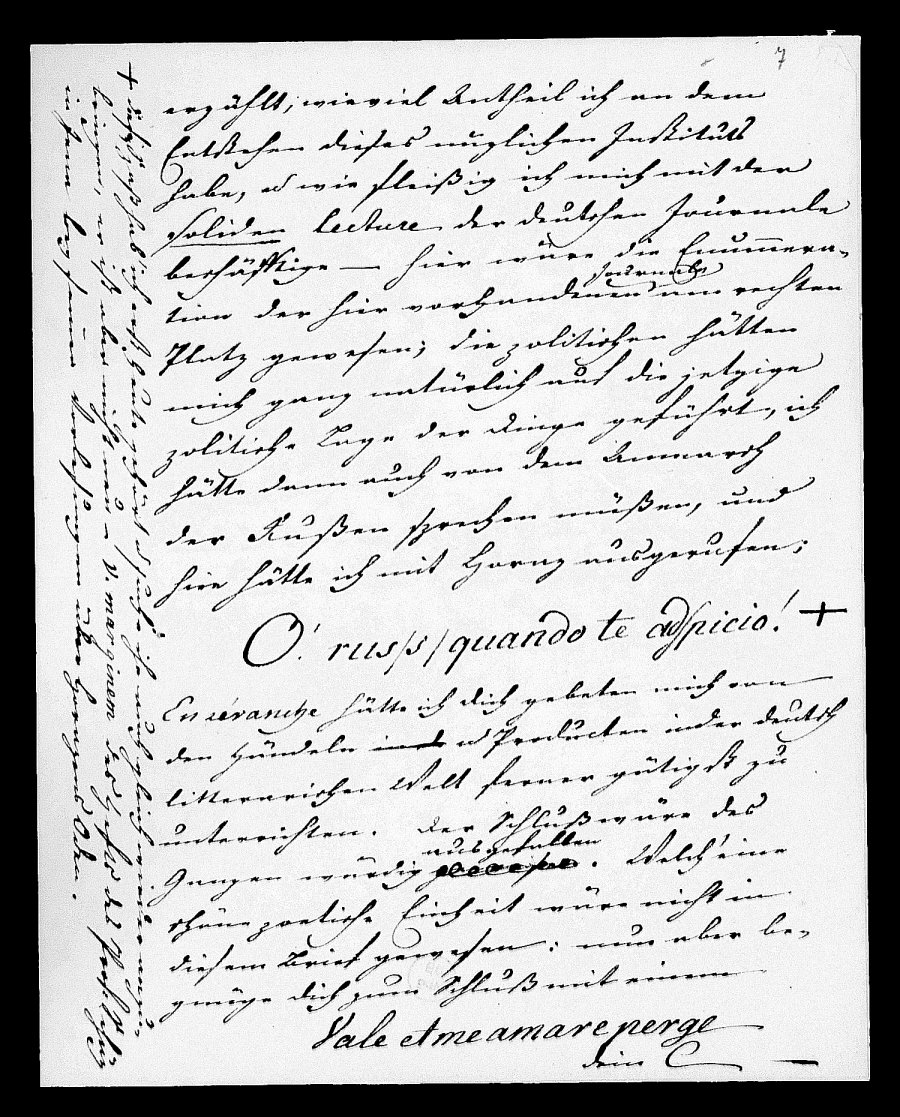 7
erzählt, wieviel Antheil ich an dem
Entstehen dieses nüzlichen Instituts
habe, u wie fleißig ich mich mit der
soliden Lecture der deutschen Journale
beschäftige — hier wäre die Enumera-
tion der hier vorhandenen Journale am rechten
Platz gewesen; die politischen hätten
mich ganz natürlich auf die jetzige
politische Lage der Dinge geführt, ich
hätte dann auch von dem Anmarsch
der Rußen sprechen müßen, und
hier hätte ich mit Horaz ausgerufen;
O! rus/s/ quando te adspicio! +
En révanche hätte ich dich gebeten mich von
den Händeln u Producten in der deutsch
litterarischen Welt ferner gütigst zu
unterrichten. Der Schluß wäre des
Ganzen würdig ausgefallen. Welch' eine
schöne poetische Einheit wäre nicht in
diesem Brief gewesen: nun aber be-
gnüge dich zum Schluß mit einem
Vale et me amare perge
dein C —
+
bringen, er ist aber nicht mein u. marginem
in seinen Vorlesungen über Horazens Oden.